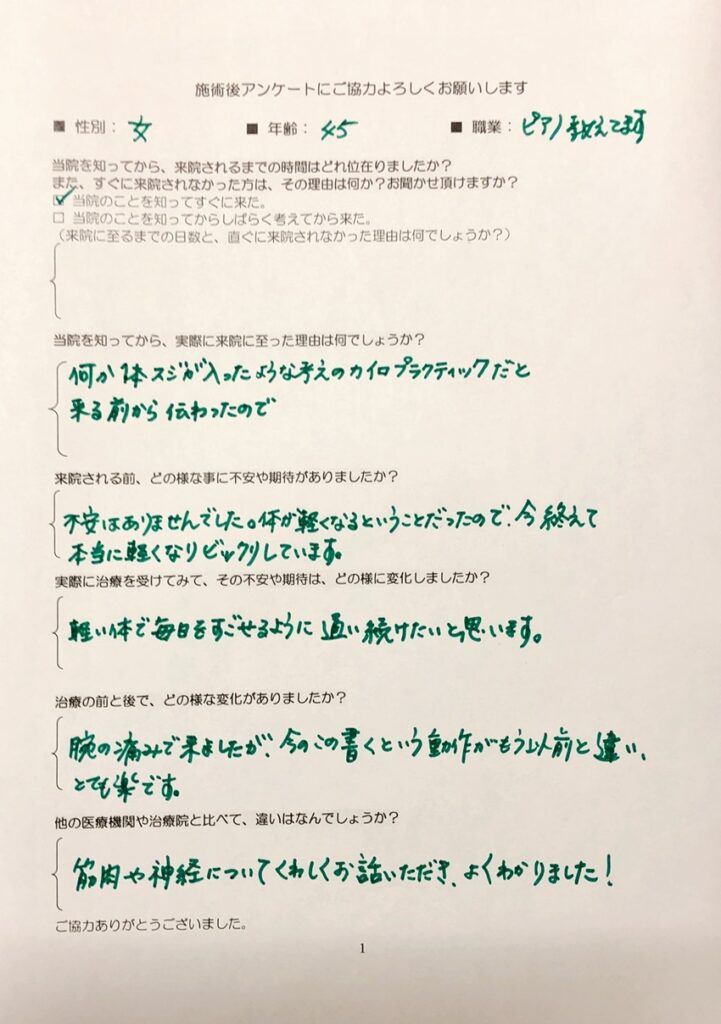 施術後アンケートにご協力よろしくお願いします
■ 性別： 女 ■ 年齢： 45 ■ 職業： ピアノ教えてます
当院を知ってから、来院されるまでの時間はどれ位在りましたか？
また、すぐに来院されなかった方は、その理由は何か？お聞かせ頂けますか？
☑ 当院のことを知ってすぐに来た。
□ 当院のことを知ってからしばらく考えてから来た。
（来院に至るまでの日数と、直ぐに来院されなかった理由は何でしょうか？）
当院を知ってから、実際に来院に至った理由は何でしょうか？
何か1本スジが入ったような考えのカイロプラクティックだと
来る前から伝わったので
来院される前、どの様な事に不安や期待がありましたか？
不安はありませんでした。体が軽くなるということだったので、今終えて
本当に軽くなりビックリしています。
実際に治療を受けてみて、その不安や期待は、どの様に変化しましたか？
軽い体で毎日をすごせるように通い続けたいと思います。
治療の前と後で、どの様な変化がありましたか？
腕の痛みで来ましたが、今のこの書くという動作がもう以前と違い、
とても楽です。
他の医療機関や治療院と比べて、違いはなんでしょうか？
筋肉や神経についてくわしくお話いただき、よくわかりました！
ご協力ありがとうございました。
1